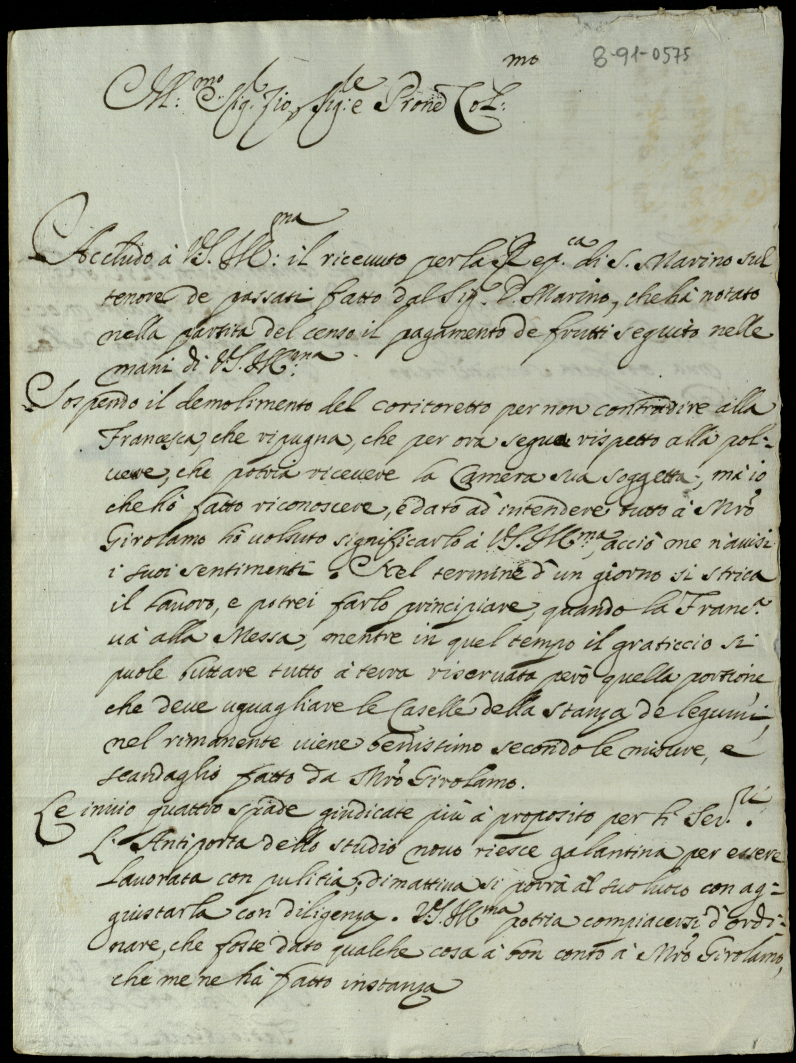 8-91-0575
Ill:mo Sig. Zio, Sig:e e Pron Col:mo
Accludo à V.S. Ill:ma il riceuuto per la Rep.ca di S. Marino sul
tenore de passati fatto dal Sig. D. Marino, che hà notato
nella partita del censo il pagamento de frutti seguito nelle
mani di V.S. Ill:ma.
Sospendo il demolimento del coritoretto per non contradire alla
Francesca, che ripugna, che per ora segua rispetto alla pol-
uere, che potria riceuere la Camera sua soggetta, mà io
che hò fatto riconoscere, e dato ad intendere tutto à Mrõ
Girolamo hò uolsuto significarlo à V.S. Ill:ma, acciò me n'auisi
i suoi sentimenti. Nel termine d'un giorno si strica
il lauoro, e potrei farlo principiare, quando la Franc.a
uà alla Messa, mentre in quel tempo il graticcio si
puole buttare tutto à terra riseruata però quella portione
che deue uguagliare le Caselle della stanza de legumi,
nel rimanente uiene benissimo secondo le misure, e
scandaglio fatto da Mrõ Girolamo.
Le inuio quattro spade giudicate più à proposito per li Ser.ri.
L'Antiporta dello studio nouo riesce galantina per essere
lauorata con pulitia; dimattina si porrà al suo luoco con ag-
giustarla con diligenza. V.S. Ill:ma potria compiacersi d'ordi-
nare, che fosse dato qualche cosa à bon conto à Mrõ Girolamo,
che me ne hà fatto instanza